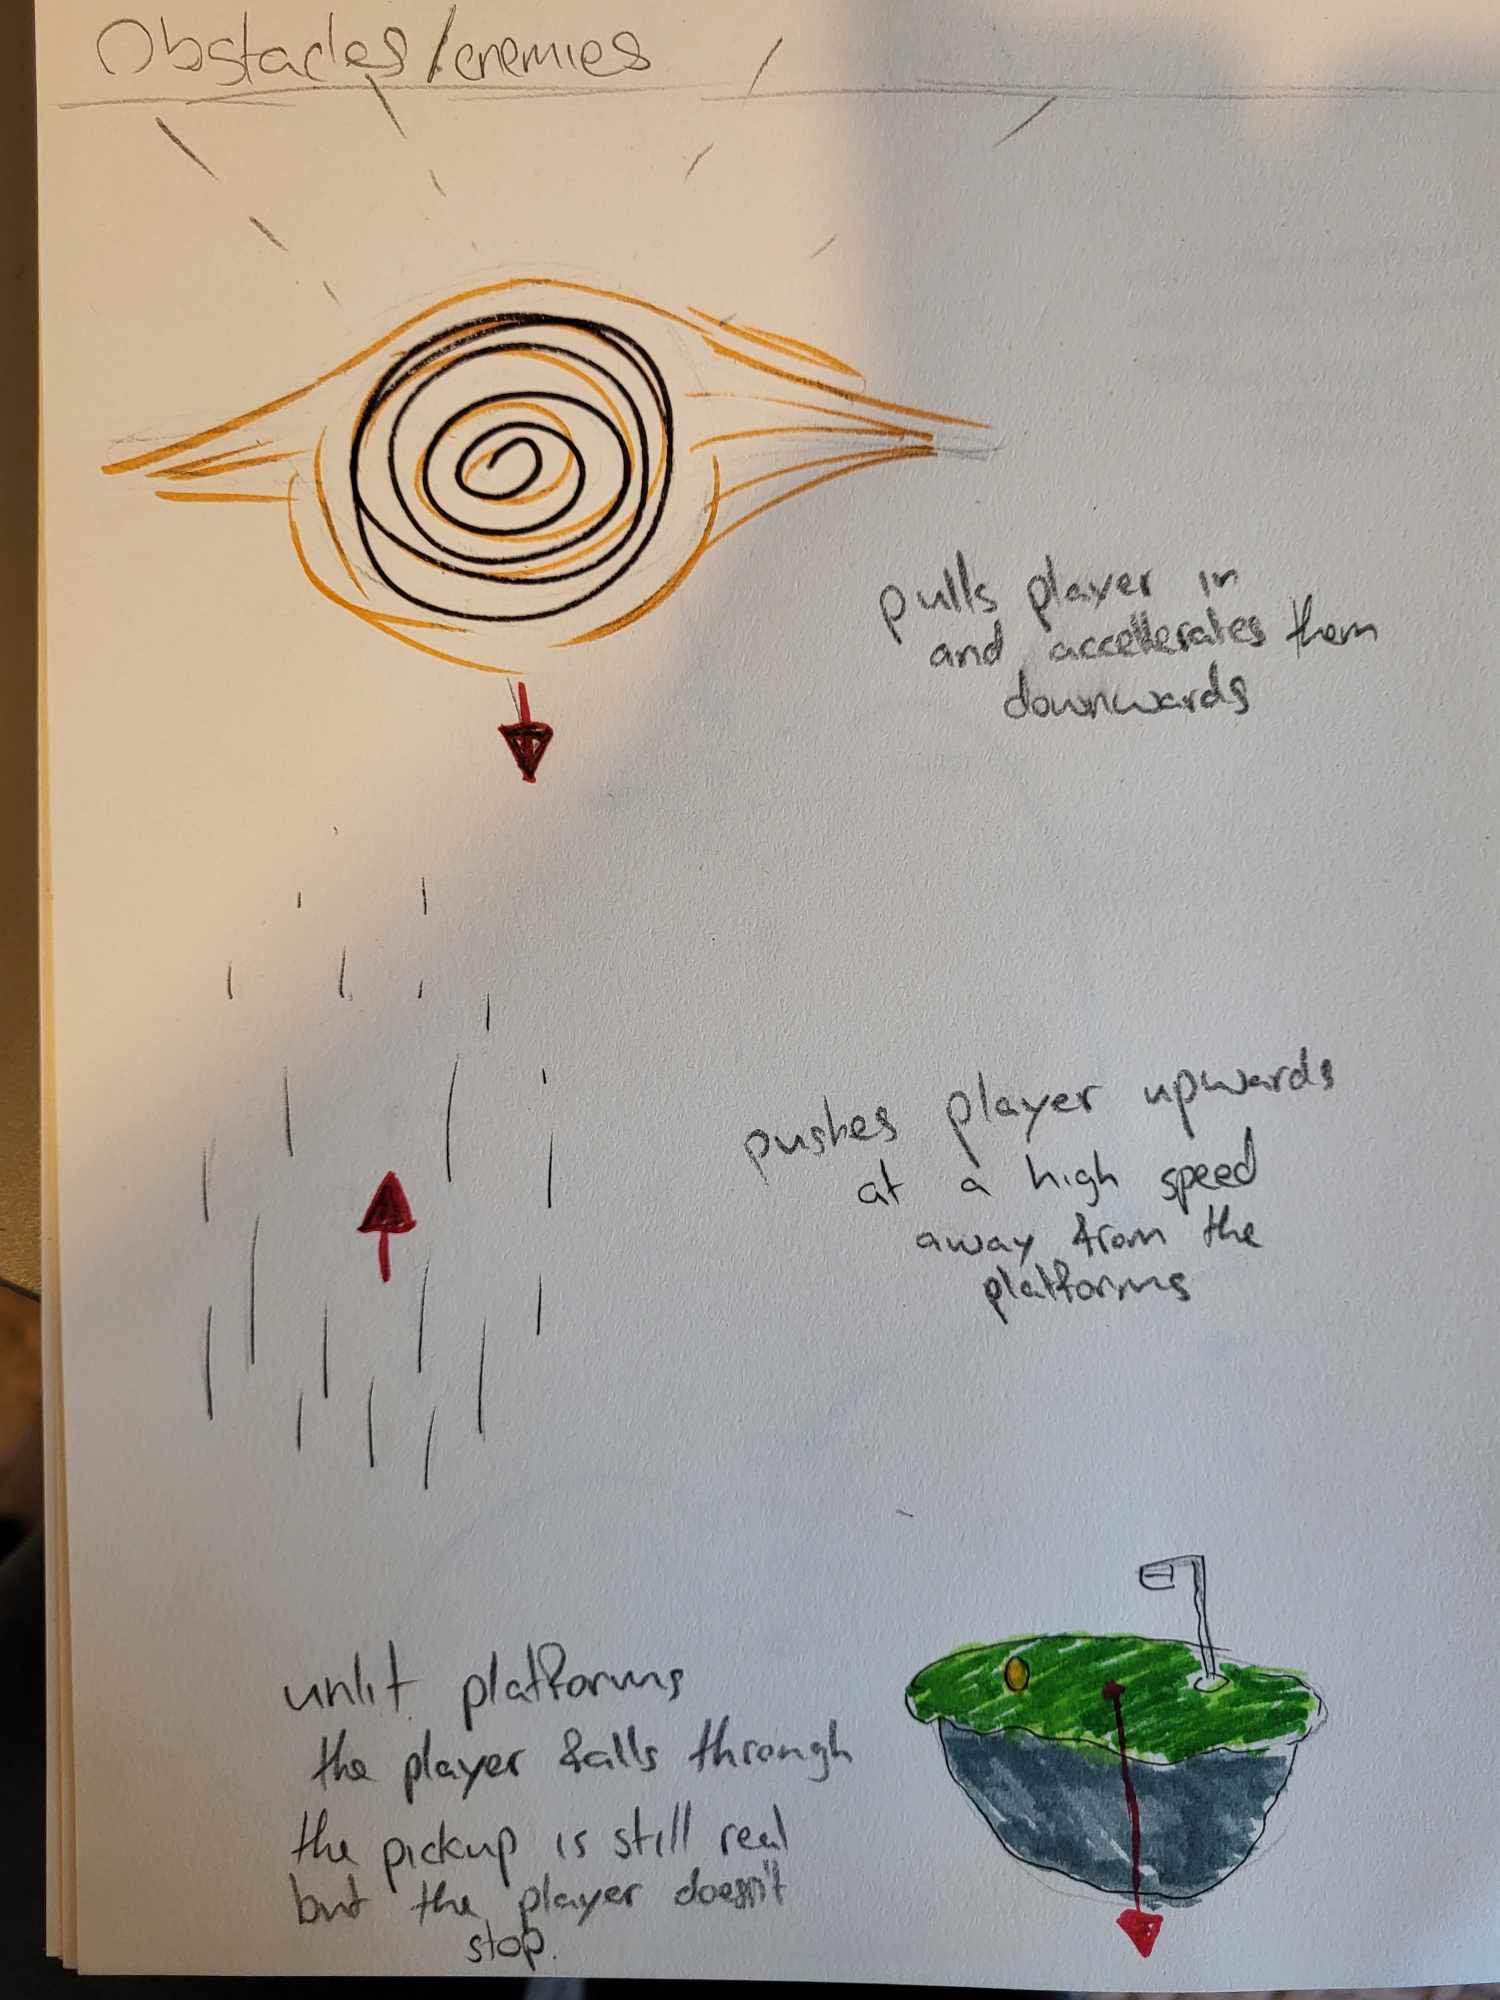 Obstacles/enemies
pulls player in
and accellerates them
downwards
pushes player upwards
at a high speed
away from the
platforms
unlit platforms
the player falls through
the pickup is still real
but the player doesn't
stop.